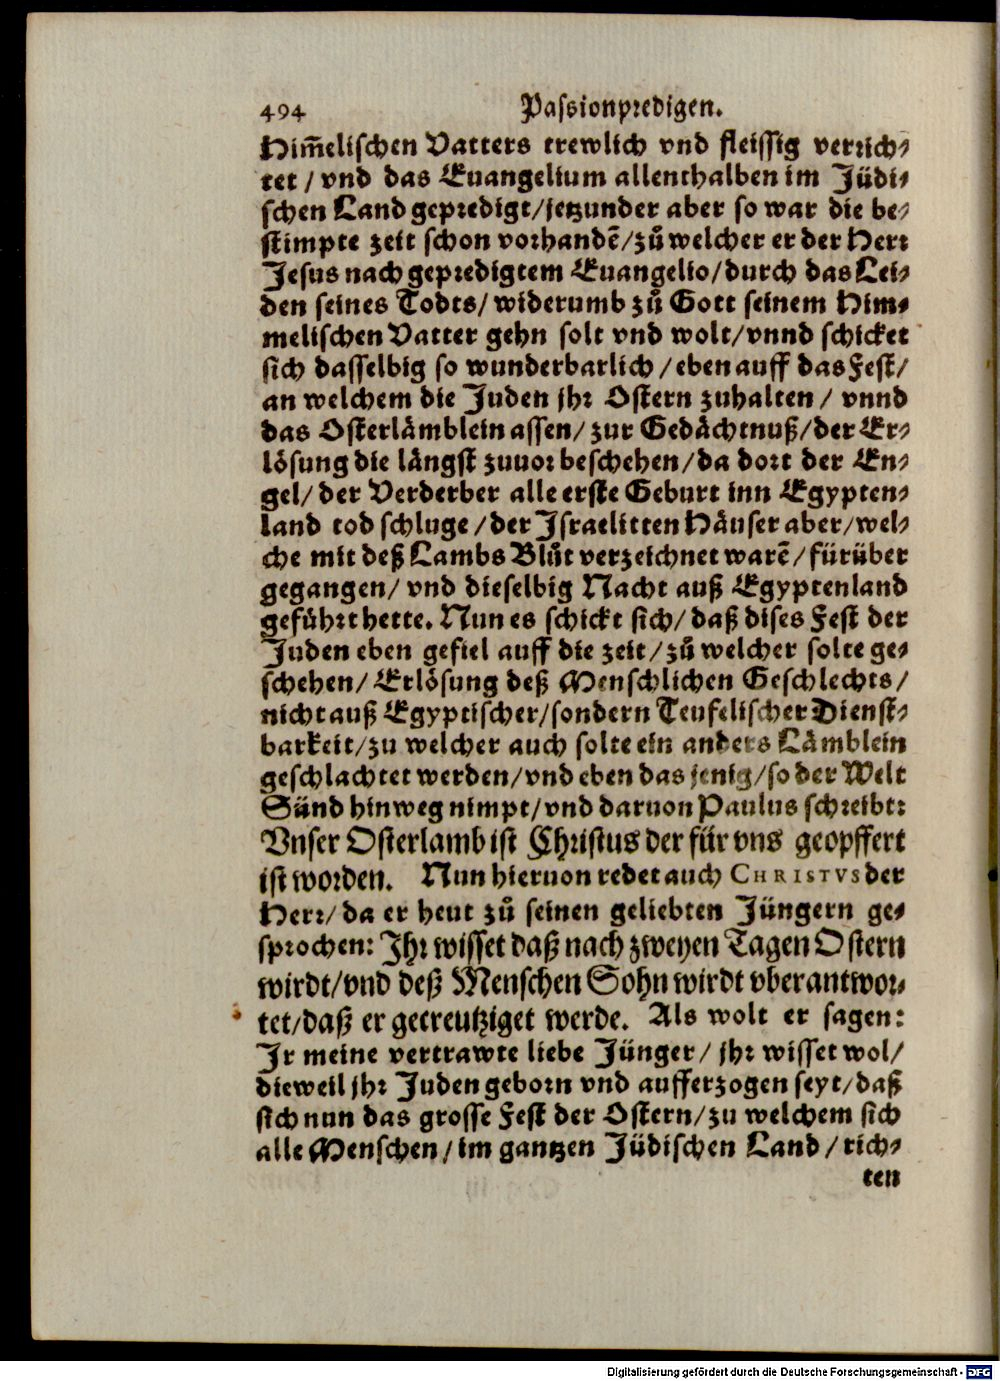 494 Passionpredigen.
Him̃elischen Vatters trewlich vnd fleissig verrich⸗
tet / vnd das Euangelium allenthalben im Jüdi⸗
schen Land gepredigt/jetzunder aber so war die be⸗
stimpte zeit schon vorhandẽ/zů welcher er der Herr
Jesus nach gepredigtem Euangelio/durch das Lei⸗
den seines Todts/widerumb zů Gott seinem Him⸗
melischen Vatter gehn solt vnd wolt/vnnd schicket
sich dasselbig so wunderbarlich /eben auff das Fest/
an welchem die Juden jhr Ostern zuhalten / vnnd
das Osterlämblein assen/zur Gedächtnuß/der Er⸗
lösung die längst zuuor beschehen/da dort der En⸗
gel/der Verderber alle erste Geburt inn Egypten⸗
land tod schluge /der Israelitten Häuser aber/wel⸗
che mit deß Lambs Blůt verzeichnet warẽ/fürüber
gegangen/ vnd dieselbig Nacht auß Egyptenland
geführt hette. Nun es schickt sich/daß dises Fest der
Juden eben gefiel auff die zeit/zů welcher solte ge⸗
schehen/Erlösung deß Menschlichen Geschlechts/
nicht auß Egyptischer/sondern Teufelischer Dienst⸗
barkeit/zu welcher auch solte ein anders Lämblein
geschlachtet werden/vnd eben das jenig/so der Welt
Sünd hinweg nimpt/vnd daruon Paulus schreibt:
Vnser Osterlamb ist Christus der für vns geopffert
ist worden. Nun hieruon redet auch CHRISTVS der
Herr/da er heut zů seinen geliebten Jüngern ge⸗
sprochen: Jhr wisset daß nach zweyen Tagen Ostern
wirdt/vnd deß Menschen Sohn wirdt vberantwor⸗
tet/daß er gecreutziget werde. Als wolt er sagen:
Jr meine vertrawte liebe Jünger/ jhr wisset wol/
dieweil jhr Juden geborn vnd aufferzogen seyt/daß
sich nun das grosse Fest der Ostern/zu welchem sich
alle Menschen/im gantzen Jüdischen Land/rich⸗
ten
Digitalisierung gefördert durch die Deutsche Forschungsgemeinschaft - DFG